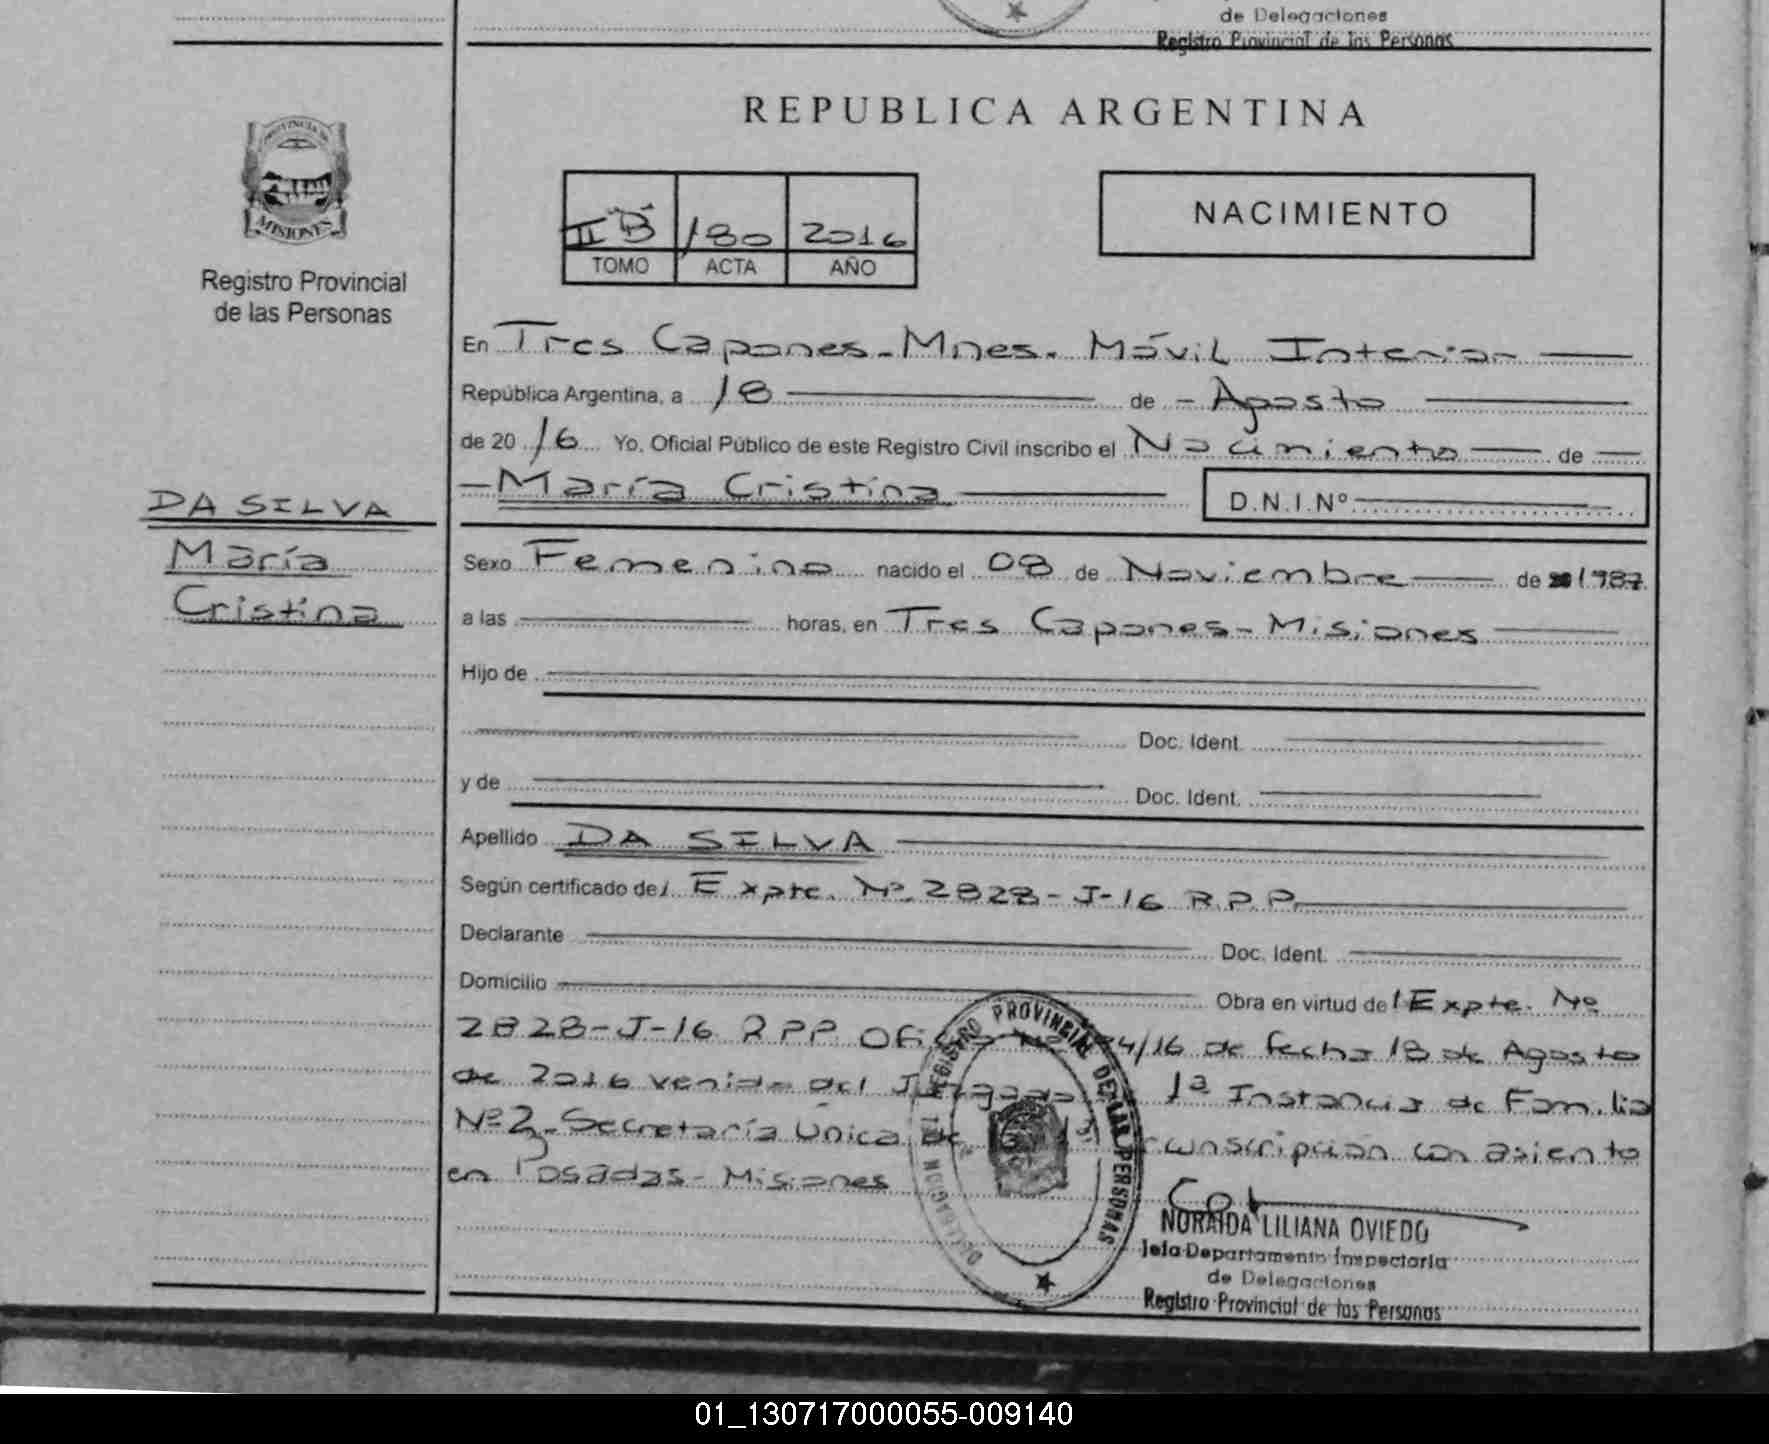 de Delegaciones
Registro Provincial de las Personas
REPUBLICA ARGENTINA
PROVINCIA DE
MISIONES
II "B" /180 2016
TOMO ACTA AÑO
NACIMIENTO
Registro Provincial
de las Personas
En Tres Capones - Mnes. Móvil Interior
República Argentina, a 18 de - Agosto
de 20 16 Yo, Oficial Público de este Registro Civil inscribo el Nacimiento de
- María Cristina
D.N.I.Nº
DA SILVA
María
Cristina
Sexo Femenino nacido el 08 de Noviembre de 1987
a las horas, en Tres Capones - Misiones
Hijo de
Doc. Ident.
y de Doc. Ident.
Apellido DA SILVA
Según certificado del Expte. Nº 2828-J-16 R.P.P.
Declarante Doc. Ident.
Domicilio Obra en virtud del Expte. Nº
2828-J-16 RPP Nº /16 de fecha 18 de Agosto
de 2016 venido del Juzgado 1ª Instancia de Familia
Nº 2 - Secretaría Única de con asiento
en Posadas - Misiones
REGISTRO PROVINCIAL DE LAS PERSONAS
NORAIDA LILIANA OVIEDO
Jefa Departamento Inspectoria
de Delegaciones
Registro Provincial de las Personas
01_130717000055-009140